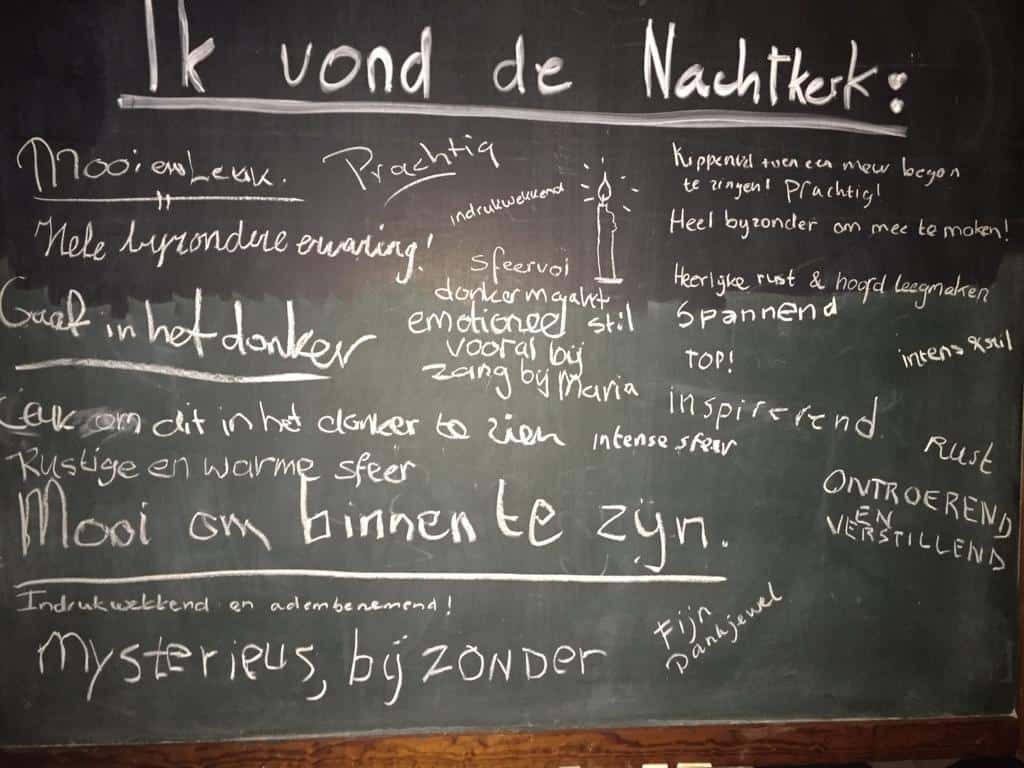 Ik vond de Nachtkerk:
Mooi en Leuk.
Prachtig
indrukwekkend
Hele byzondere ervaring!
Gaaf in het donker
sfeervol
donker maakt
emotioneel stil
vooral bij
zang bij Maria
Leuk om dit in het donker te zien
intense sfeer
Rustige en warme sfeer
Mooi om binnen te zijn.
Indrukwekkend en adembenemend!
Mysterieus, bijzonder
Kippenvel toen een mevr begon
te zingen! Prachtig!
Heel byzonder om mee te maken!
Heerlijke rust & hoofd leegmaken
Spannend
TOP!
intens & stil
inspirerend
Rust
ONTROEREND
EN
VERSTILLEND
Fijn
Dankjewel